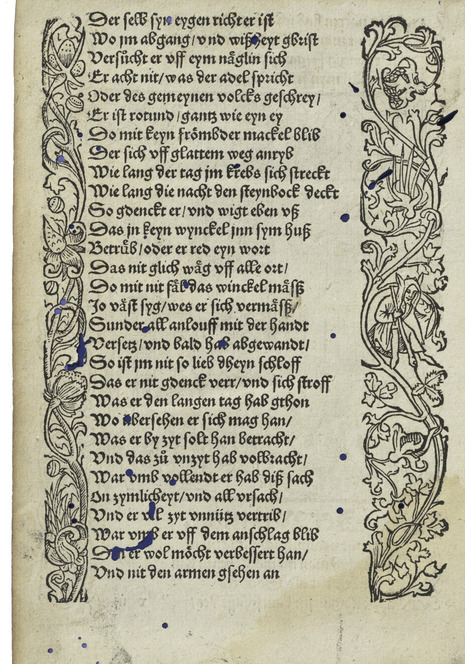 Der selb syn eygen richter ist
Wo jm abgang/ vnd wißheyt gbrist
Versůcht er vff eym näglin sich
Er acht nit/ was der adel spricht
Oder des gemeynen volcks geschrey/
Er ist rotund/ gantz wie eyn ey
Do mit keyn frömbder mackel blib
Der sich vff glattem weg anryb
Wie lang der tag jm krebs sich streckt
Wie lang die nacht den steynbock deckt
So gdenckt er/ vnd wigt eben vß
Das jn keyn wynckel jnn sym huß
Betrüb/ oder er red eyn wort
Das nit glich wäg vff alle ort/
Do mit nit fäl das winckel mäsß
Jo väst syg/ wes er sich vermäsß/
Sunder all anlouff mit der handt
Versetz/ vnd bald hab abgewandt/
So ist jm nit so lieb dheyn schloff
Das er nit gdenck verr/ vnd sich stroff
Was er den langen tag hab gthon
Wo übersehen er sich mag han/
Was er by zyt solt han betracht/
Vnd das zů vnzyt hab volbracht/
War vmb vollendt er hab diß sach
On zymlicheyt/ vnd all vrsach/
Vnd er vil zyt vnnütz vertrib/
War vmb er vff dem anschlag blib
Den er wol möcht verbessert han/
Vnd nit den armen gsehen an